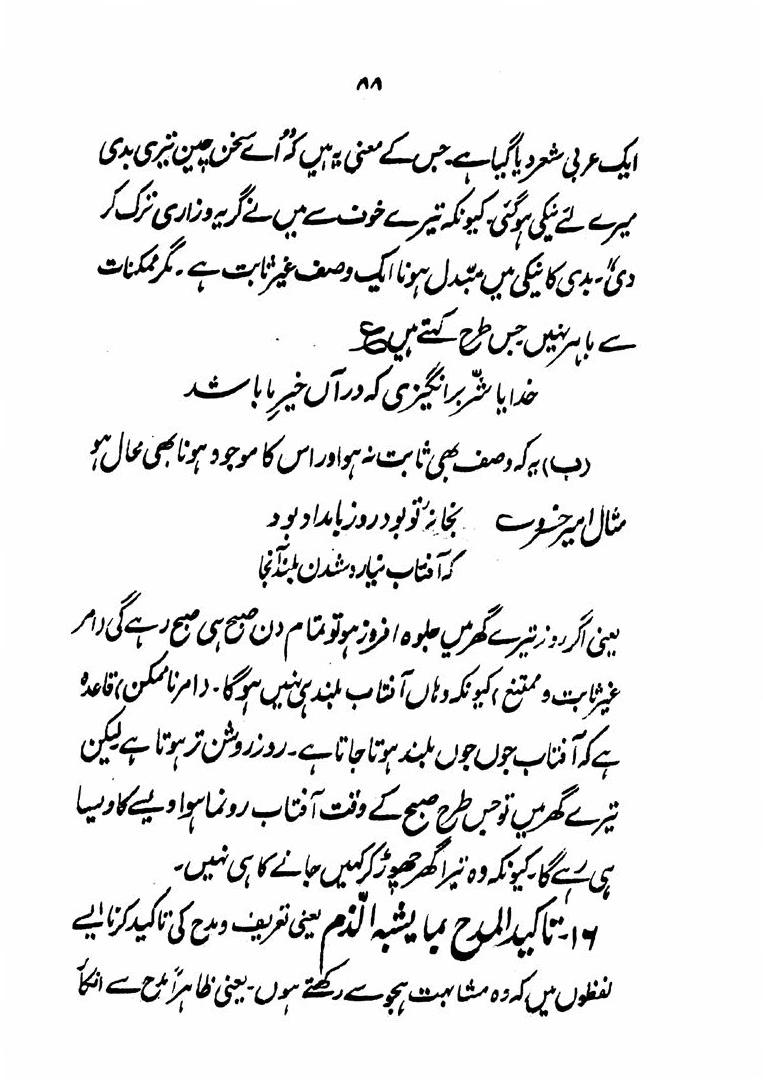 ۸۸
ایک عربی شعر دیا گیا ہے۔ جس کے معنی یہ ہیں کہ "اے سخن چین تیری بدی
میرے لئے نیکی ہو گئی۔ کیونکہ تیرے خوف سے میں نے گریہ و زاری ترک کر
دی"۔ بدی کا نیکی میں مبدل ہونا ایک وصف غیر ثابت ہے۔ مگر ممکنات
سے باہر نہیں جس طرح کہتے ہیں ع
خدایا شرّ بر انگیزی کہ در آں خیر ما باشد
(ب) یہ کہ وصف بھی ثابت نہ ہو اور اس کا موجود ہونا بھی محال ہو
مثال امیر خسرو بخانۂ تو بود روز بامداد بود
کہ آفتاب نیارد شدن بلند آنجا
یعنی اگر روز تیرے گھر میں جلوہ افروز ہو تو تمام دن صبح ہی صبح رہے گی (امر
غیر ثابت و ممتنع) کیونکہ وہاں آفتاب بلند ہی نہیں ہو گا۔ (امر ناممکن) قاعدہ
ہے کہ آفتاب جوں جوں بلند ہوتا جاتا ہے۔ روز روشن تر ہوتا ہے لیکن
تیرے گھر میں تو جس طرح صبح کے وقت آفتاب رونما ہوا ویسے کا ویسا
ہی رہے گا۔ کیونکہ وہ تیرا گھر چھوڑ کر کہیں جانے کا ہی نہیں۔
۱۶۔ تاکید المدح بما یشبہ الذّم یعنی تعریف و مدح کی تاکید کرنا ایسے
لفظوں میں کہ وہ مشابہت ہجو سے رکھتے ہوں۔ یعنی ظاہراً مدح سے انکا